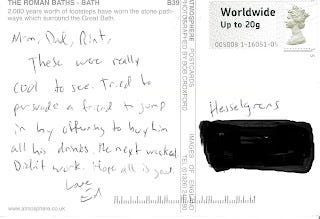 THE ROMAN BATHS - BATH
B39
2,000 years worth of footsteps have worn the stone path-
ways which surround the Great Bath.
Mom, Dad,
These were really
cool to see. Tried to
persuade a friend to jump
in by offering to buy him
all his drinks the next weekend.
Didn't work. Hope all is good.
Love
Ed
www.atmosphere.co.uk
ATMOSPHERE
IMAGES OF ENGLAND
Worldwide
Up to 20g
Hesselgrens